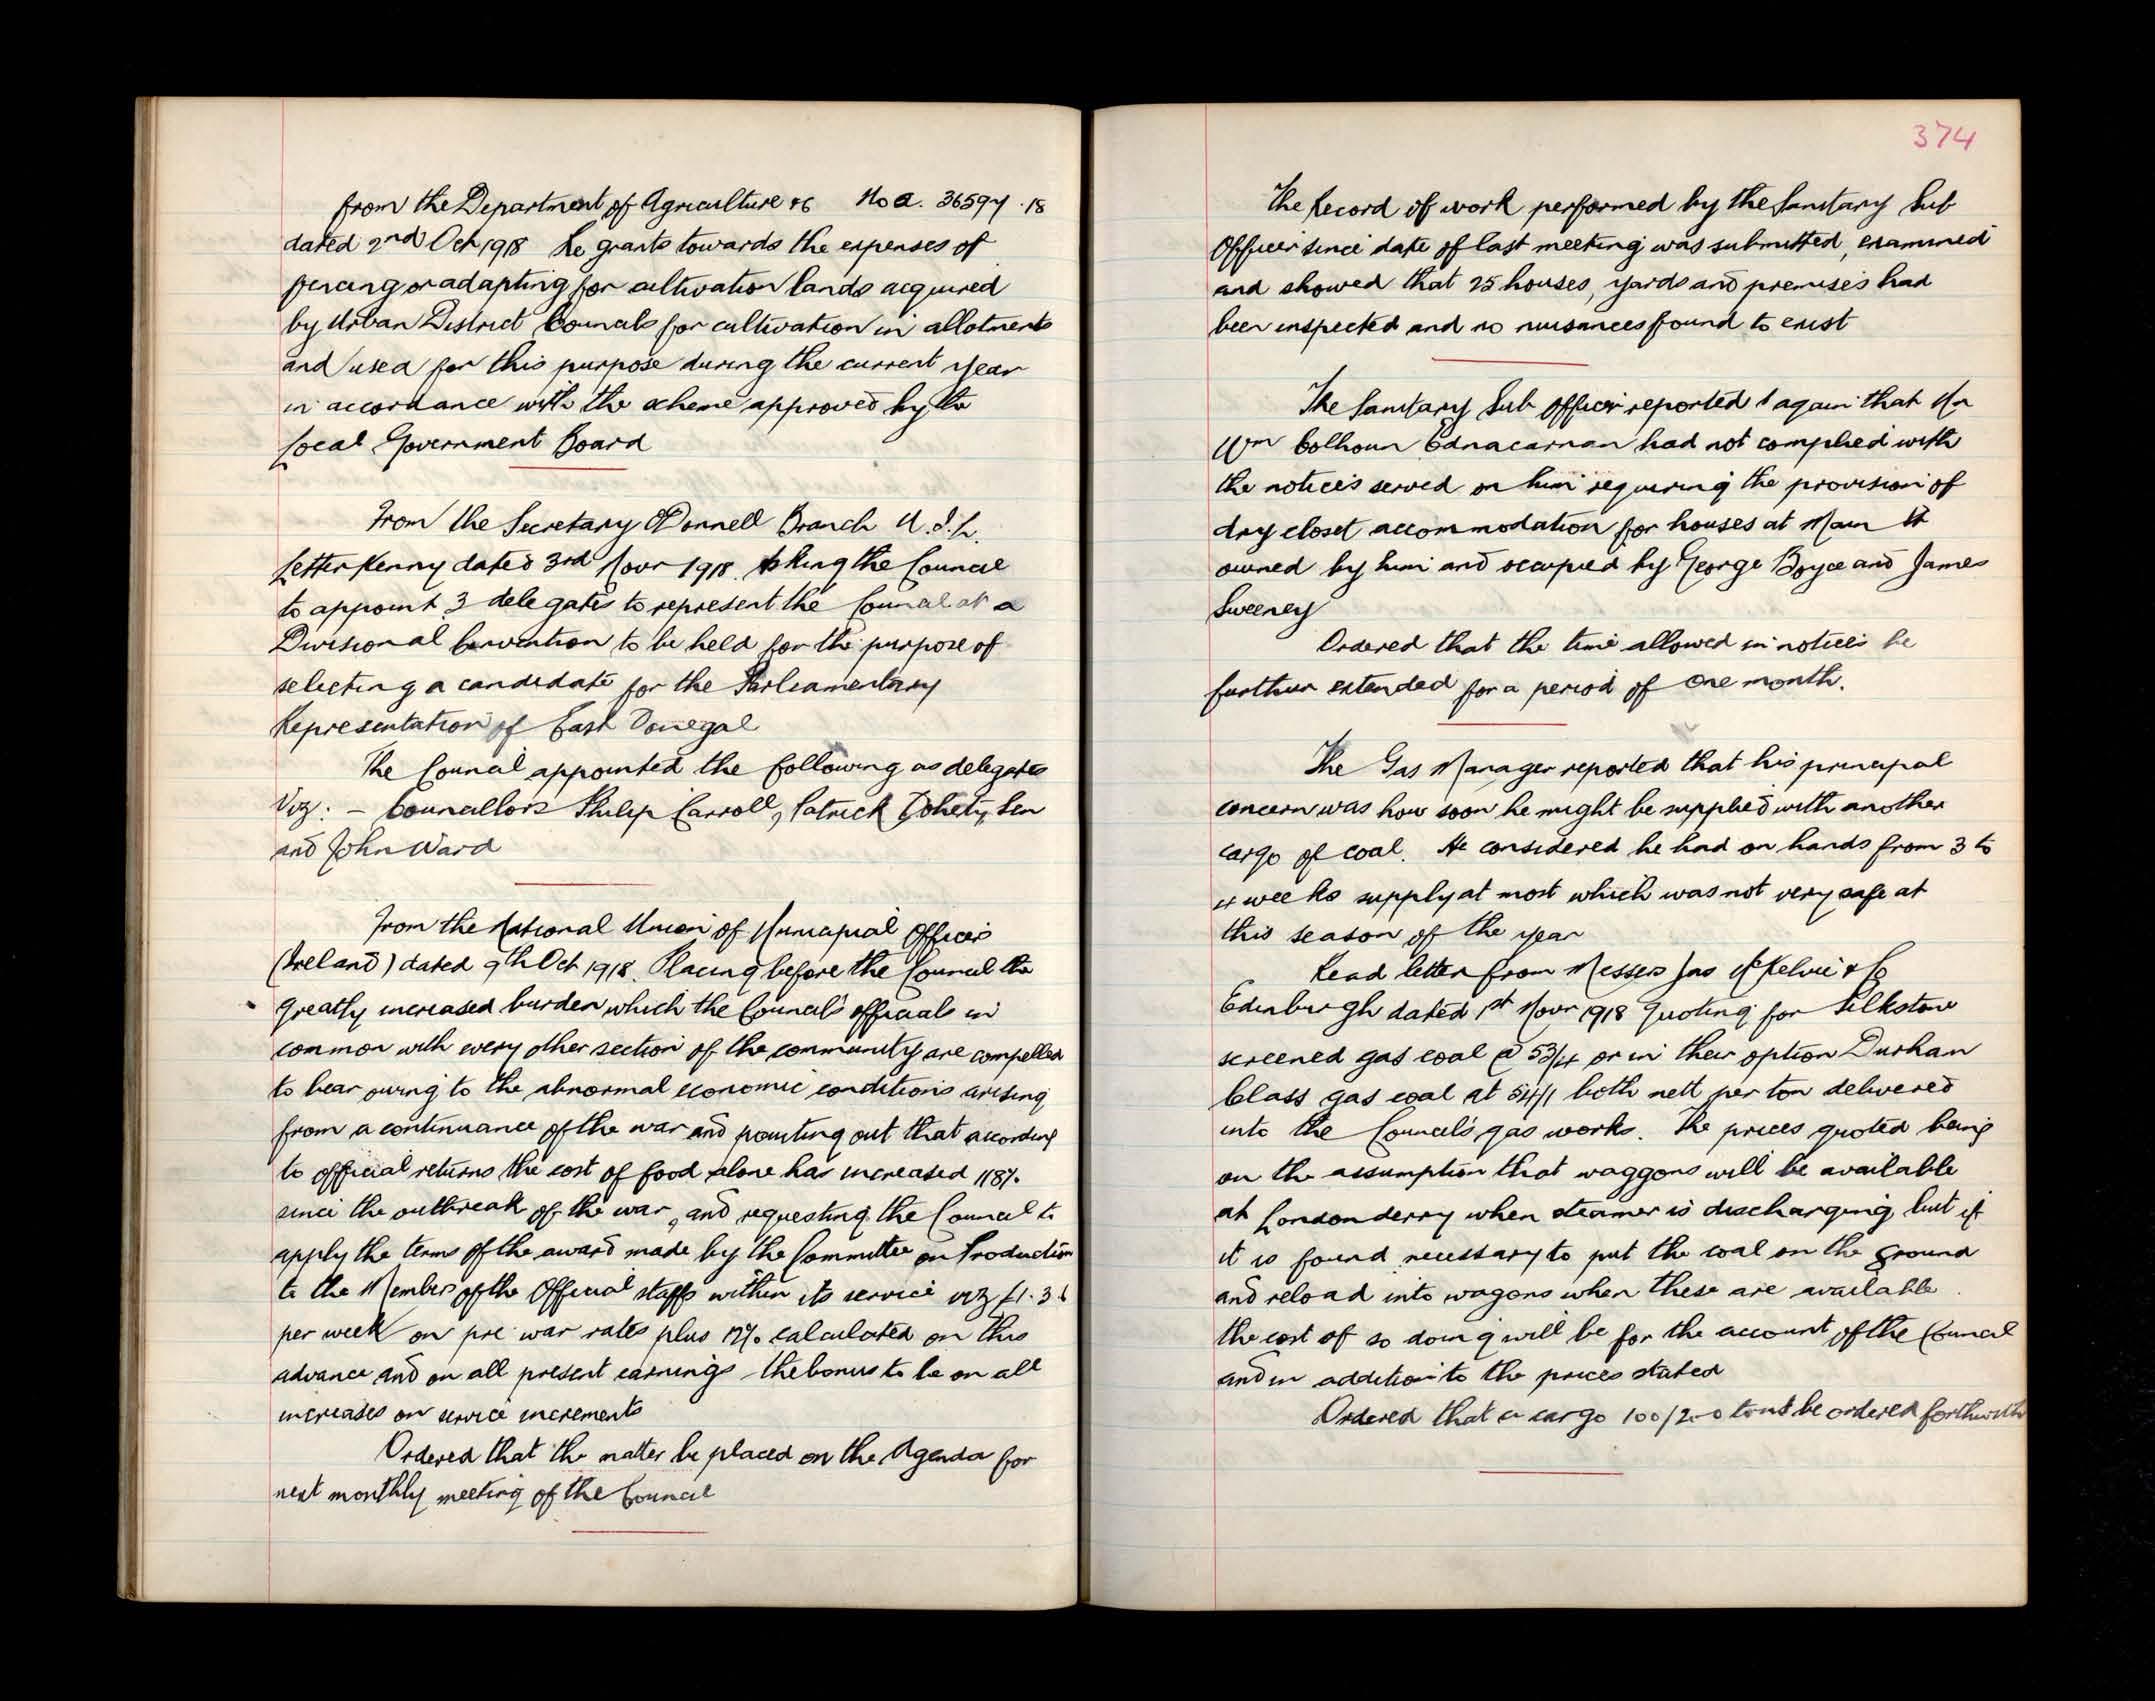 from the Department of Agriculture &c No a. 36594.18
dated 2nd Oct 1918 Re grants towards the expenses of
fencing or adapting for cultivation lands acquired
by Urban District Councils for cultivation in allotments
and used for this purpose during the current year
in accordance with the scheme approved by the
Local Government Board
From the Secretary O'Donnell Branch U.I.L.
Letterkenny dated 3rd Novr 1918. Asking the Council
to appoint 3 delegates to represent the Council at a
Divisional Convention to be held for the purpose of
selecting a candidate for the Parliamentary
Representation of East Donegal
The Council appointed the following as delegates
Viz: - Councillors Philip Carroll, Patrick Dohety, Sen
and John Ward
From the National Union of Municipial Officers
(Ireland) dated 9th Oct 1918. Placing before the Council the
greatly increased burden which the Council's officials in
common with every other section of the community are compelled
to bear owing to the abnormal economic conditions arising
from a continuance of the war and pointing out that according
to official returns the cost of food alone has increased 118%
since the outbreak of the war, and requesting the Council to
apply the terms of the award made by the Committee on Production
to the Members of the Official staffs within its service viz £1.3.6
per week on pre war rates plus 12% calculated on this
advance and on all present earnings the bonus to be on all
increases on service increments
Ordered that the matter be placed on the Agenda for
next monthly meeting of the Council
374
The Record of work performed by the Sanitary Sub
Officer since date of last meeting was submitted, examined
and showed that 25 houses, yards and premises had
been inspected and no nuisances found to exist
The Sanitary Sub Officer reported again that Mr
Wm Colhoun Ednacarnan had not complied with
the notices served on him requiring the provision of
dry closet accommodation for houses at Main St
owned by him and occupied by George Boyce and James
Sweeney
Ordered that the time allowed in notices be
further extended for a period of one month.
The Gas Manager reported that his principal
concern was how soon he might be supplied with another
cargo of coal. He considered he had on hands from 3 to
4 weeks supply at most which was not very safe at
this season of the year
Read letter from Messrs Jas McKelvie & Co
Edinburgh dated 1st Novr 1918 Quoting for Silkstone
screened gas coal @ 53/4 or in their option Durham
Class gas coal at 54/1 both nett per ton delivered
into the Council's gas works. The prices quoted being
on the assumption that waggons will be available
at Londonderry when steamer is discharging but if
it is found necessary to put the coal on the ground
and reload into wagons when these are available
the cost of so doing will be for the account of the Council
and in addition to the prices stated
Ordered that a cargo 100/200 tons be ordered forthwith